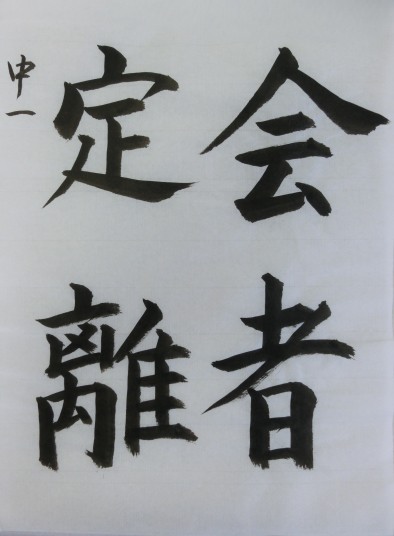 会者
定離
中一